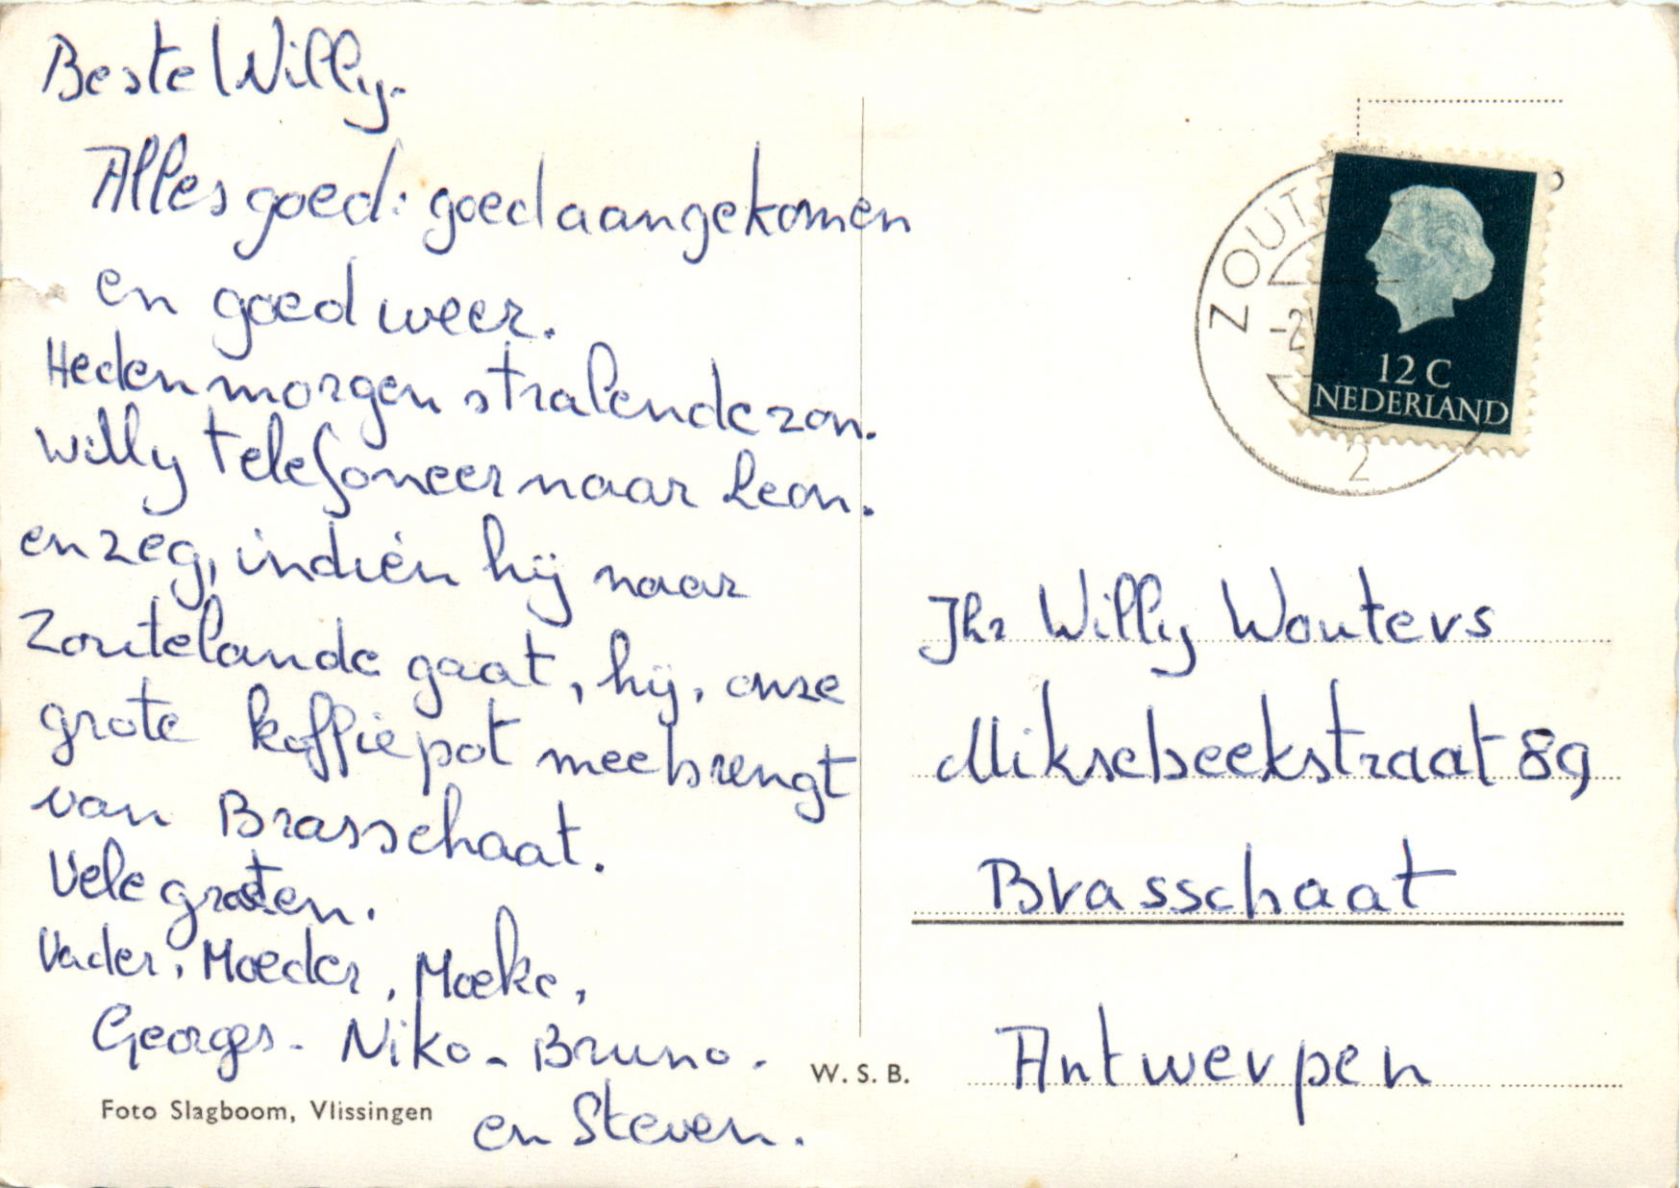 Beste Willy.
Alles goed: goed aangekomen
en goed weer.
Heden morgen stralende zon.
Willy telefoneer naar Leon.
en zeg, indien hij naar
Zoutelande gaat, hij, onze
grote koffiepot meebrengt
van Brasschaat.
Vele groeten.
Vader, Moeder, Moeke,
Georges - Niko - Bruno -
en Steven.
Foto Slagboom, Vlissingen
W. S. B.
ZOUT
-2
2
12 C
NEDERLAND
Jhr Willy Wouters
Miksebeekstraat 89
Brasschaat
Antwerpen